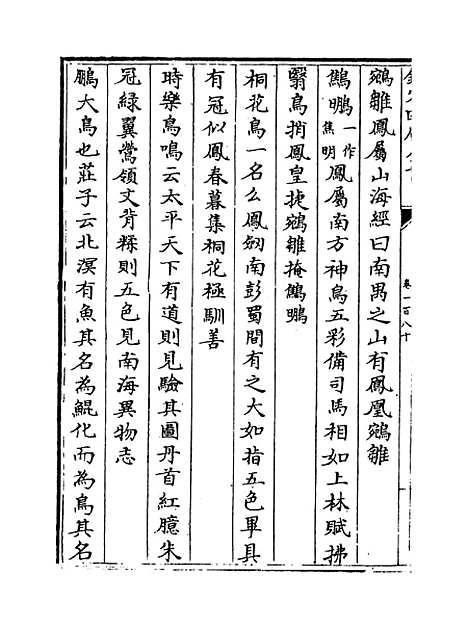 鵷雛鳳屬山海經曰南禺之山有鳳凰鵷雛
鷦鵬一作焦明鳳屬南方神鳥五彩備司馬相如上林賦拂
翳鳥捎鳳皇捷鵷雛掩鷦鵬
桐花鳥一名么鳳劔南彭蜀間有之大如指五色畢具
有冠似鳳春暮集桐花極馴善
時樂鳥鳴云太平天下有道則見驗其圖丹首紅臆朱
冠綠翼鶯領文背糅則五色見南海異物志
鵬大鳥也莊子云北溟有魚其名為鯤化而為鳥其名
卷一百八十